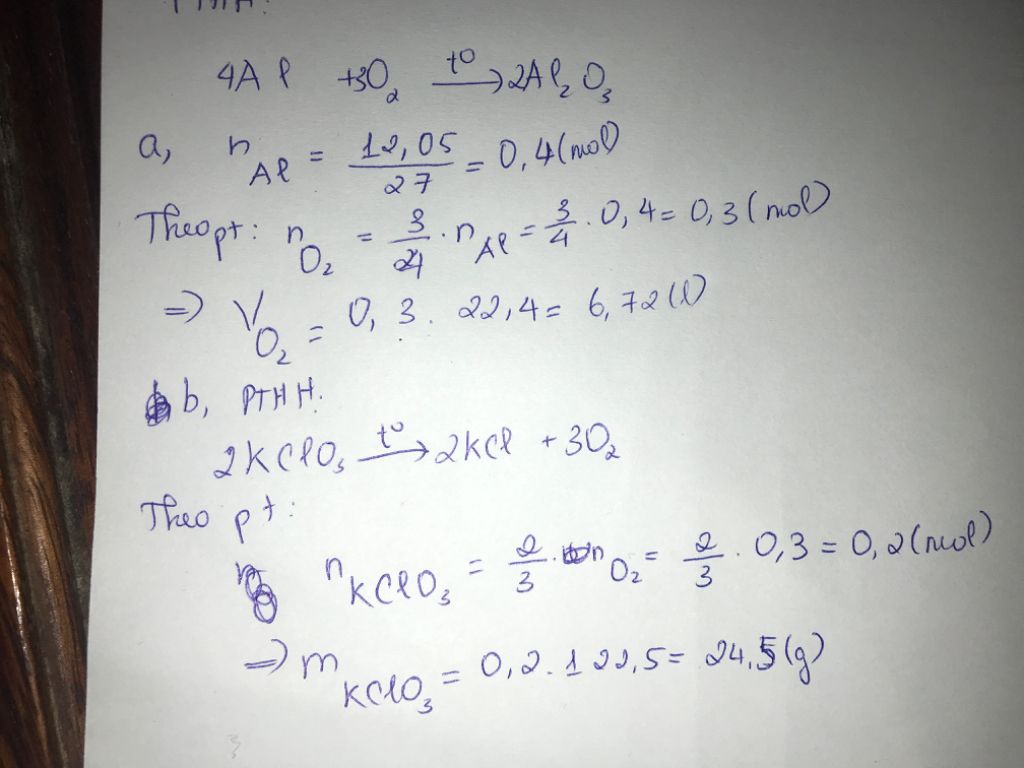 PTHH:
4Al +3O₂ —t°→ 2Al₂O₃
a, n_Al = 12,05/27 = 0,4 (mol)
Theo pt: n_O₂ = 3/4 . n_Al = 3/4 . 0,4 = 0,3 (mol)
=> V_O₂ = 0,3. 22,4 = 6,72 (l)
b, PTHH.
2KClO₃ —t°→ 2KCl + 3O₂
Theo pt:
n_KClO₃ = 2/3 . n_O₂ = 2/3 . 0,3 = 0,2 (mol)
=> m_KClO₃ = 0,2. 122,5 = 24,5 (g)